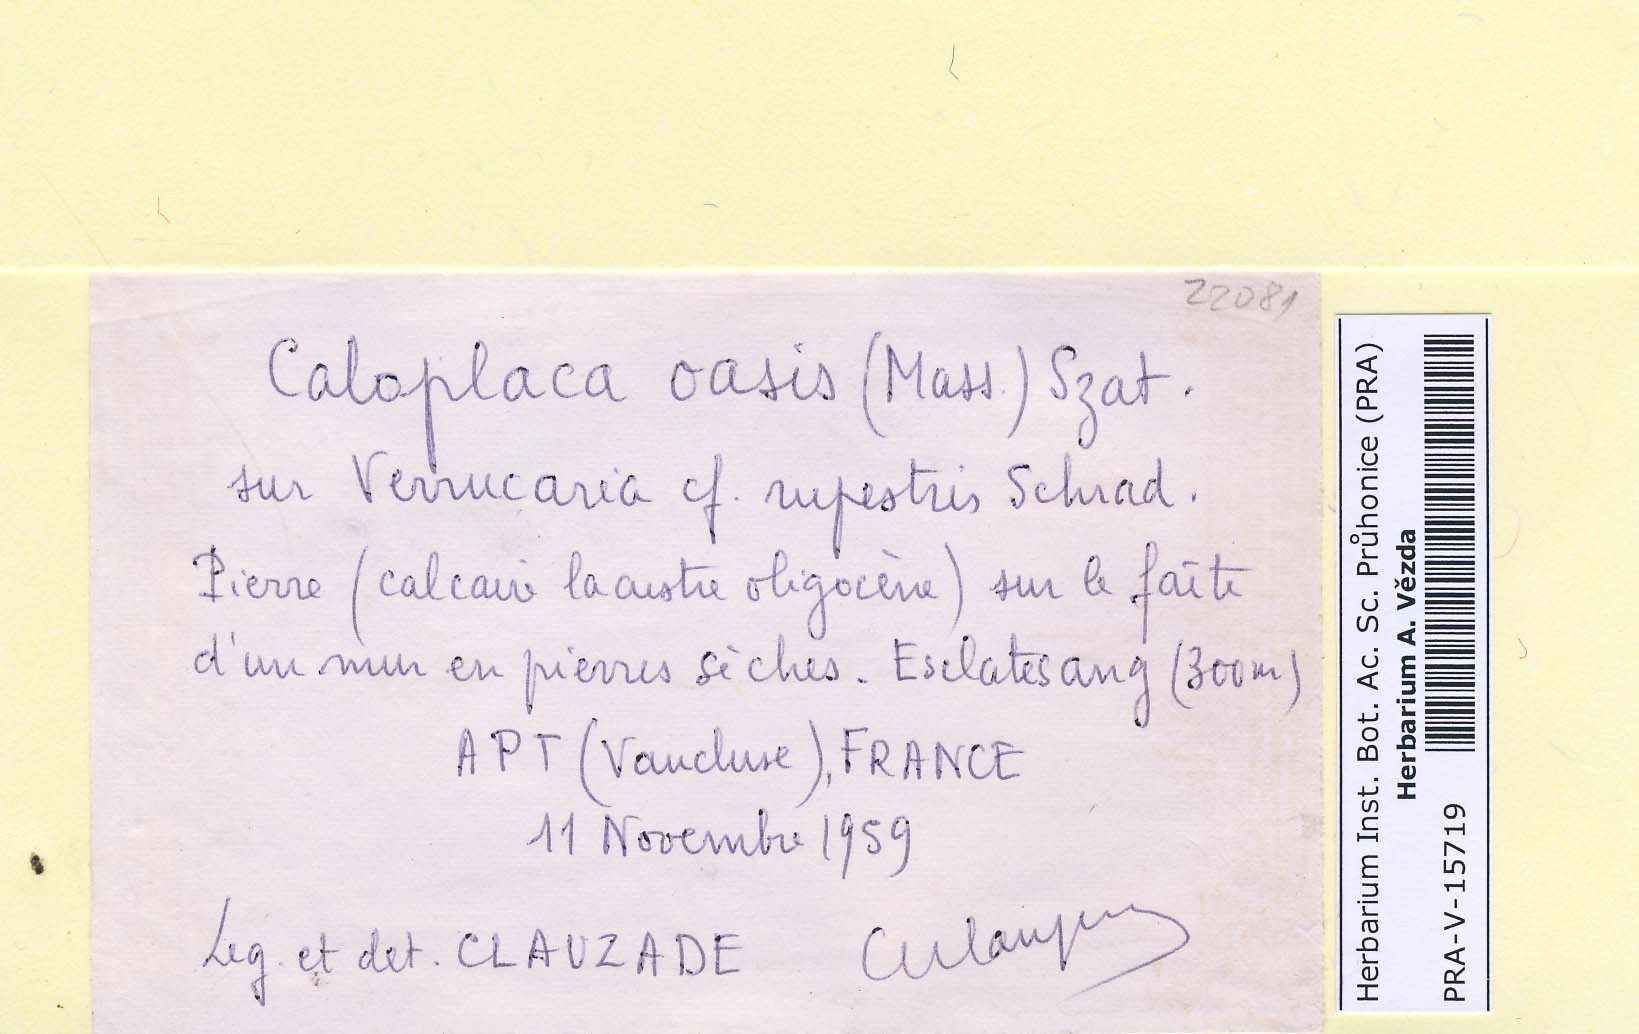 22081
Caloplaca oasis (Mass.) Szat.
sur Verrucaria cf. rupestris Schrad.
Pierre (calcaire lacustre oligocène) sur le faîte
d'un mur en pierres sèches. Esclatesang (300m)
APT (Vaucluse), FRANCE
11 Novembre 1959
Leg. et det. CLAUZADE
Herbarium Inst. Bot. Ac. Sc. Průhonice (PRA)
Herbarium A. Vězda
PRA-V-15719